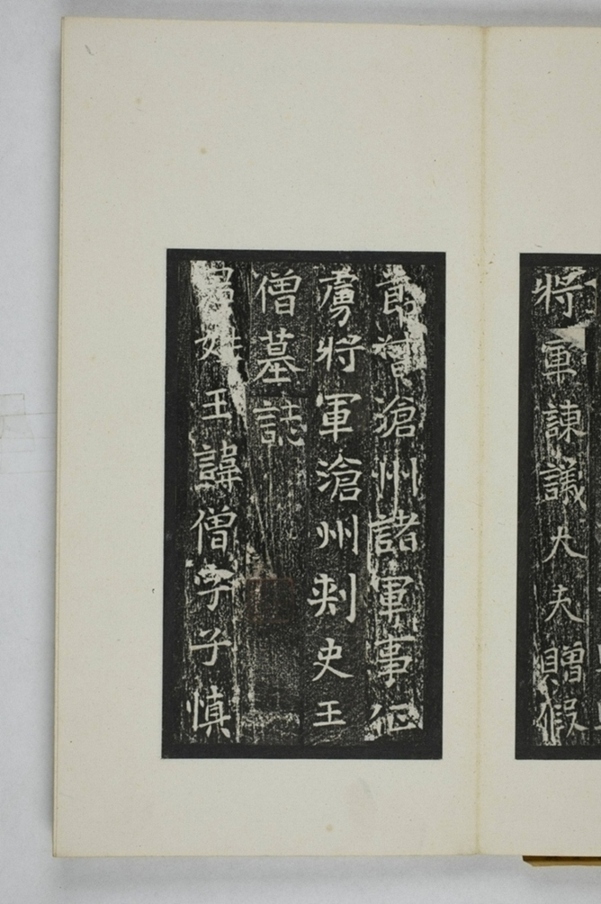 將軍諫議大夫贈假
節督滄州諸軍事征
虜將軍滄州刺史王
僧墓誌
君姓王諱僧字子慎